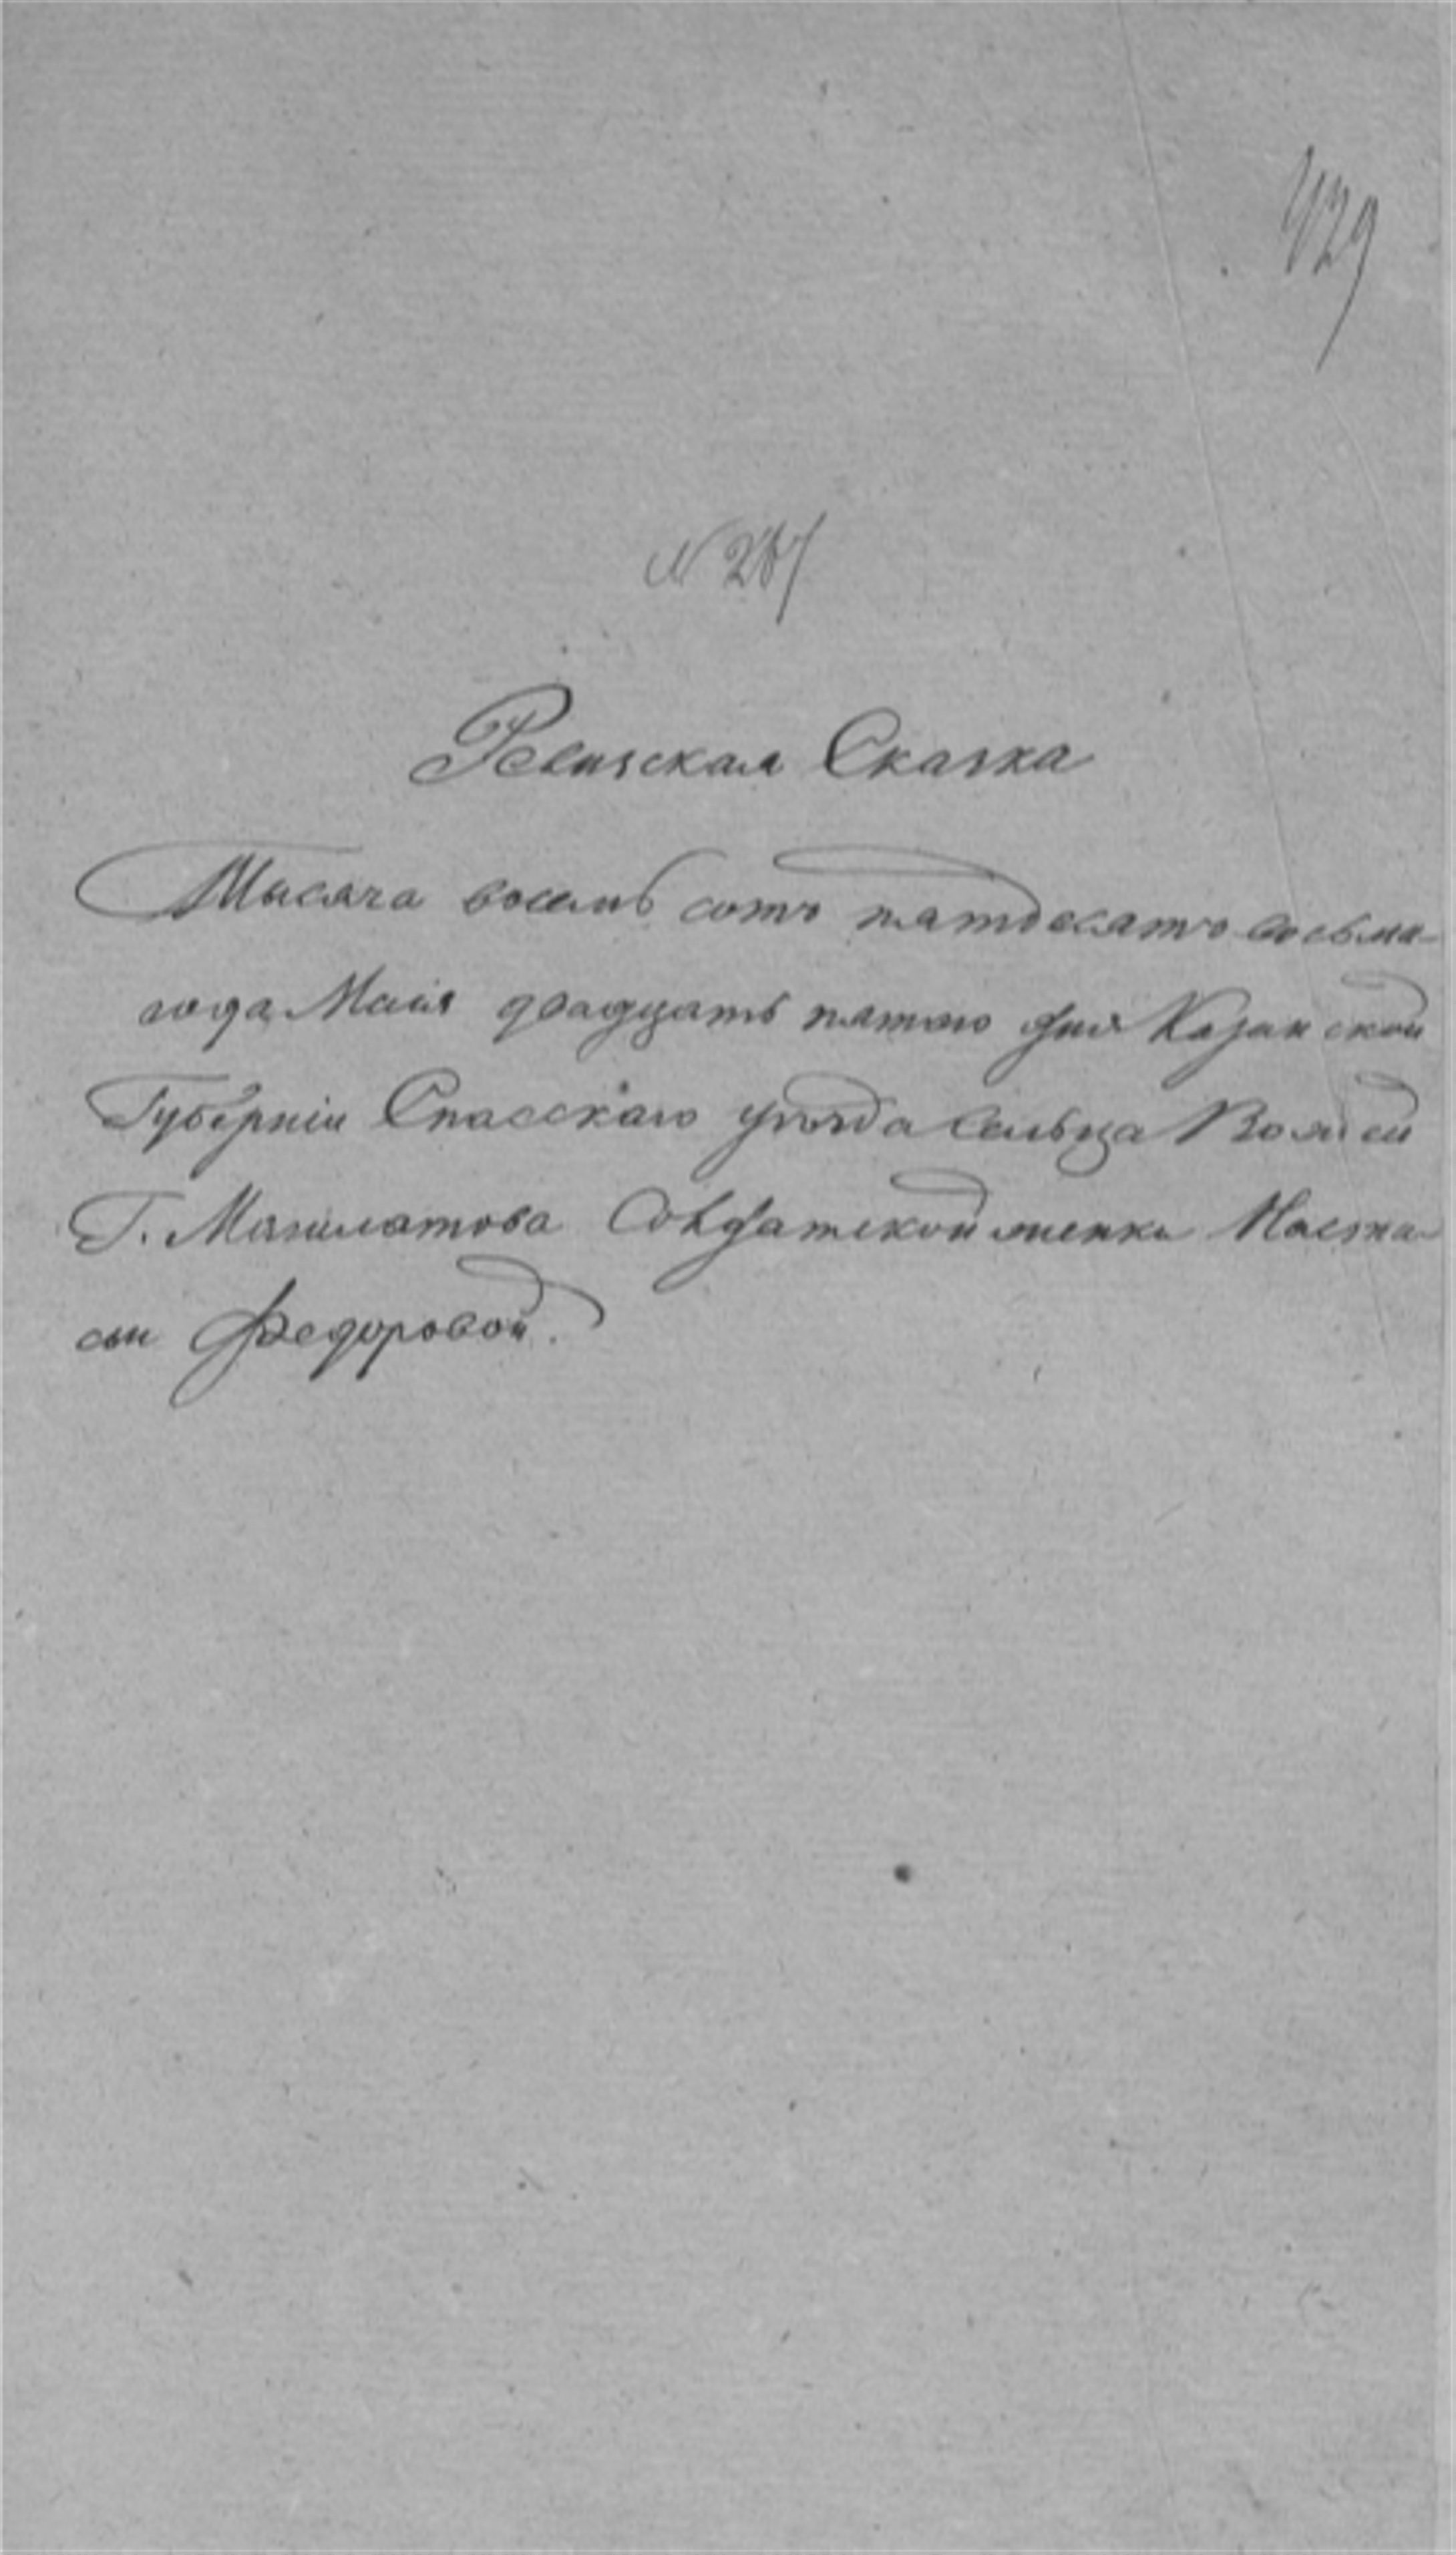 429
N 287
Ревизская Сказка
Тысяча восемь сотъ пятдесятъ восьма-
года Маія двадцать пятаго дня Казанской
Губерніи Спасскаго уѣзда Сельца
Г. Солдатской женки Наста
сьи Федоровой.